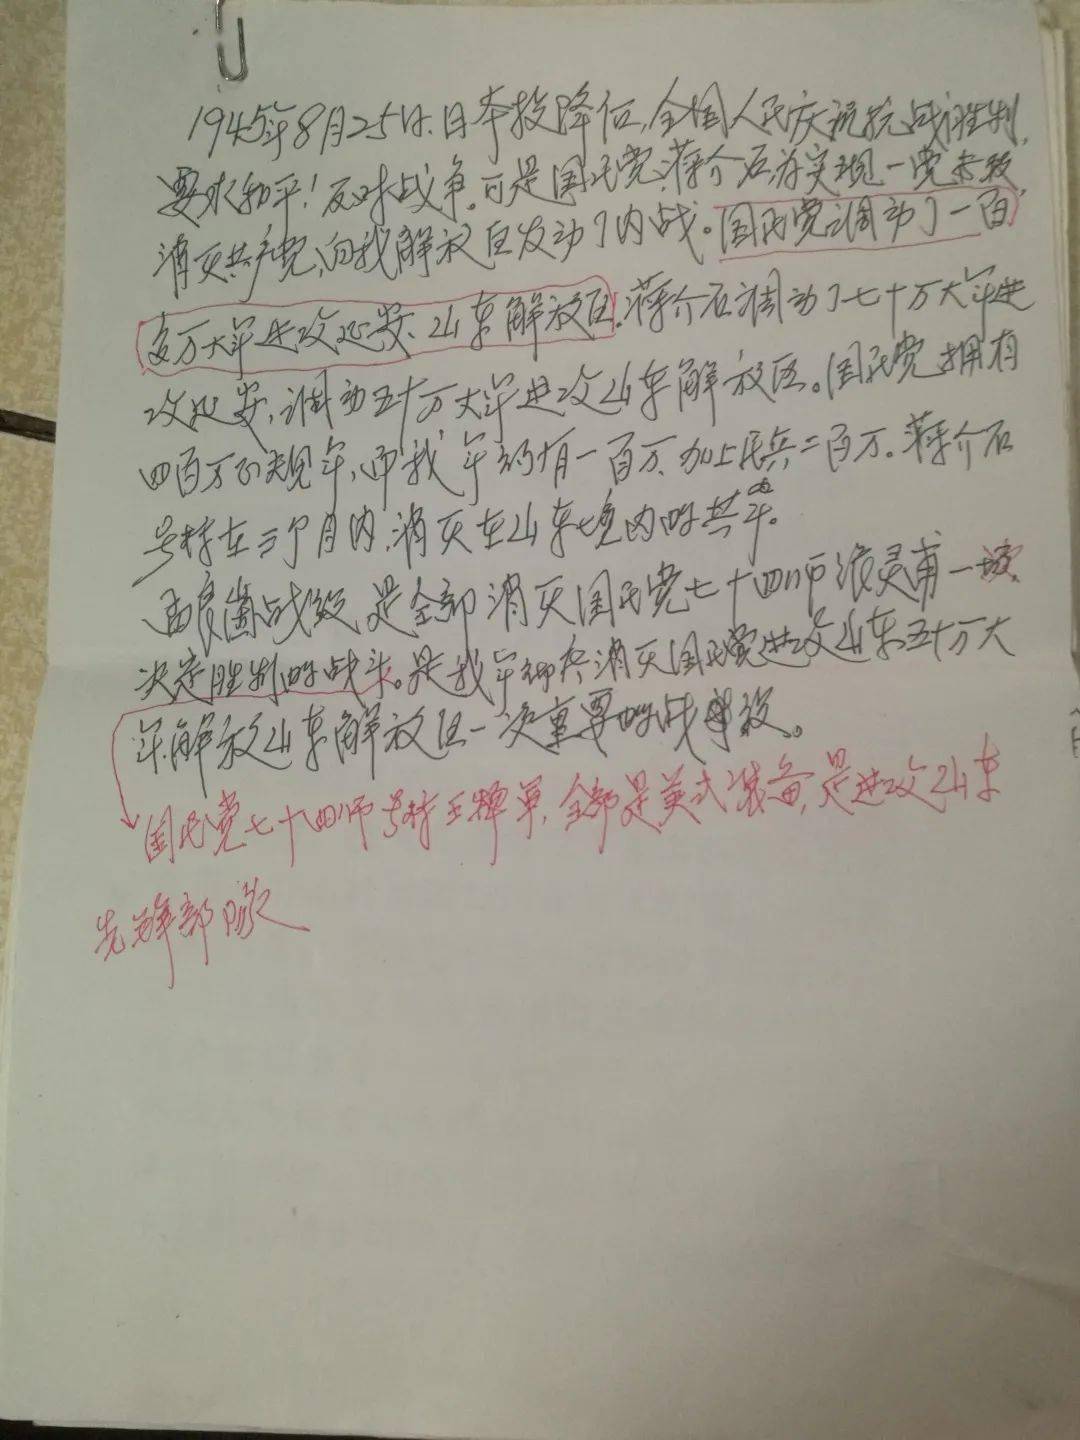 1945年8月25日,日本投降后,全国人民庆祝抗战胜利,
要求和平!反对战争。可是国民党,蒋介石为实现一党专政,
消灭共产党,向我解放区发动了内战。国民党调动了一百
多万大军进攻延安、山东解放区。蒋介石调动了七十万大军进
攻延安,调动五十万大军进攻山东解放区。国民党拥有
四百万正规军,而我军约有一百万,加上民兵二百万。蒋介石
号称在三个月内,消灭在山东境内的共军。
由良崮战役,是全部消灭国民党七十四师张灵甫一
决定胜利的战斗。是我军 消灭国民党进攻山东五十万大
军,解放山东解放区一次重要的战役。
国民党七十四师号称王牌军,全部是美式装备,是进攻山东
先锋部队